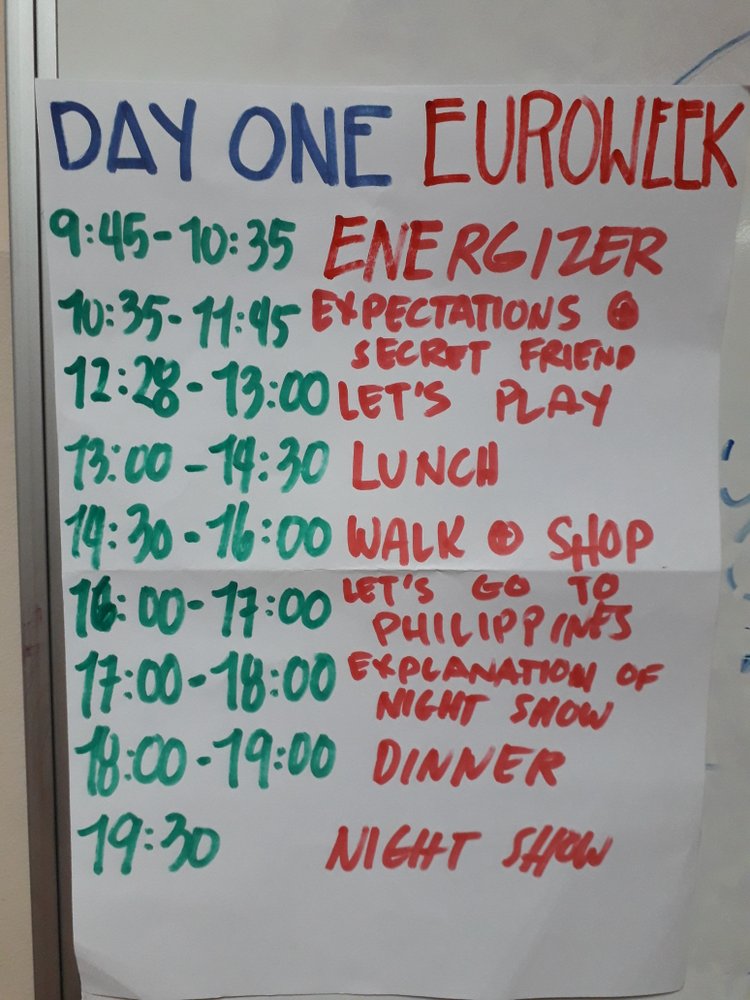 DAY ONE EUROWEEK
9:45-10:35 ENERGIZER
10:35-11:45 EXPECTATIONS +
SECRET FRIEND
12:28-13:00 LET'S PLAY
13:00-14:30 LUNCH
14:30-16:00 WALK + SHOP
16:00-17:00 LET'S GO TO
PHILIPPINES
17:00-18:00 EXPLANATION OF
NIGHT SHOW
18:00-19:00 DINNER
19:30 NIGHT SHOW